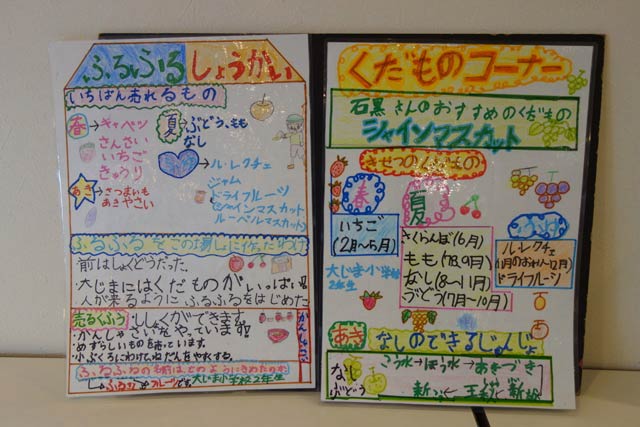 ふるふるしょうかい
いちばん売れるもの
春→キャベツ
さんさい
いちご
きゅうり
夏→ぶどう、もも
なし
→ル・レクチェ
ジャム
ドライフルーツ
(シャインマスカット
ルーベルマスカット)
あき→さつまいも
あきやさい
ふるふるをこの場しょに作ったわけ
前はしょくどうだった。
大じまにはくだものがいっぱい
人が来るようにふるふるをはじめた
売るくふう
ししょくができます。
かんしゃさいをやっています!!
めずらしいものを売っています。
小ぶくろにわけてねだんをやすくする。
ふるふるの名前は、どのようにきめたのか
フルーツです。
大じま小学校2年生
くだものコーナー
石黒さんのおすすめのくだもの
シャインマスカット
きせつのくだもの
春
いちご
(2月〜5月)
夏
さくらんぼ(6月)
もも(7,8,9月)
なし(8〜11月)
ぶどう(7月〜10月)
冬
ル・レクチェ
(11月のおわり〜12月)
ドライフルーツ
大じま小学校
2年生
あき
なしのできるじゅんじょ
なし
ぶどう
こう水→ほう水→あきづき
新